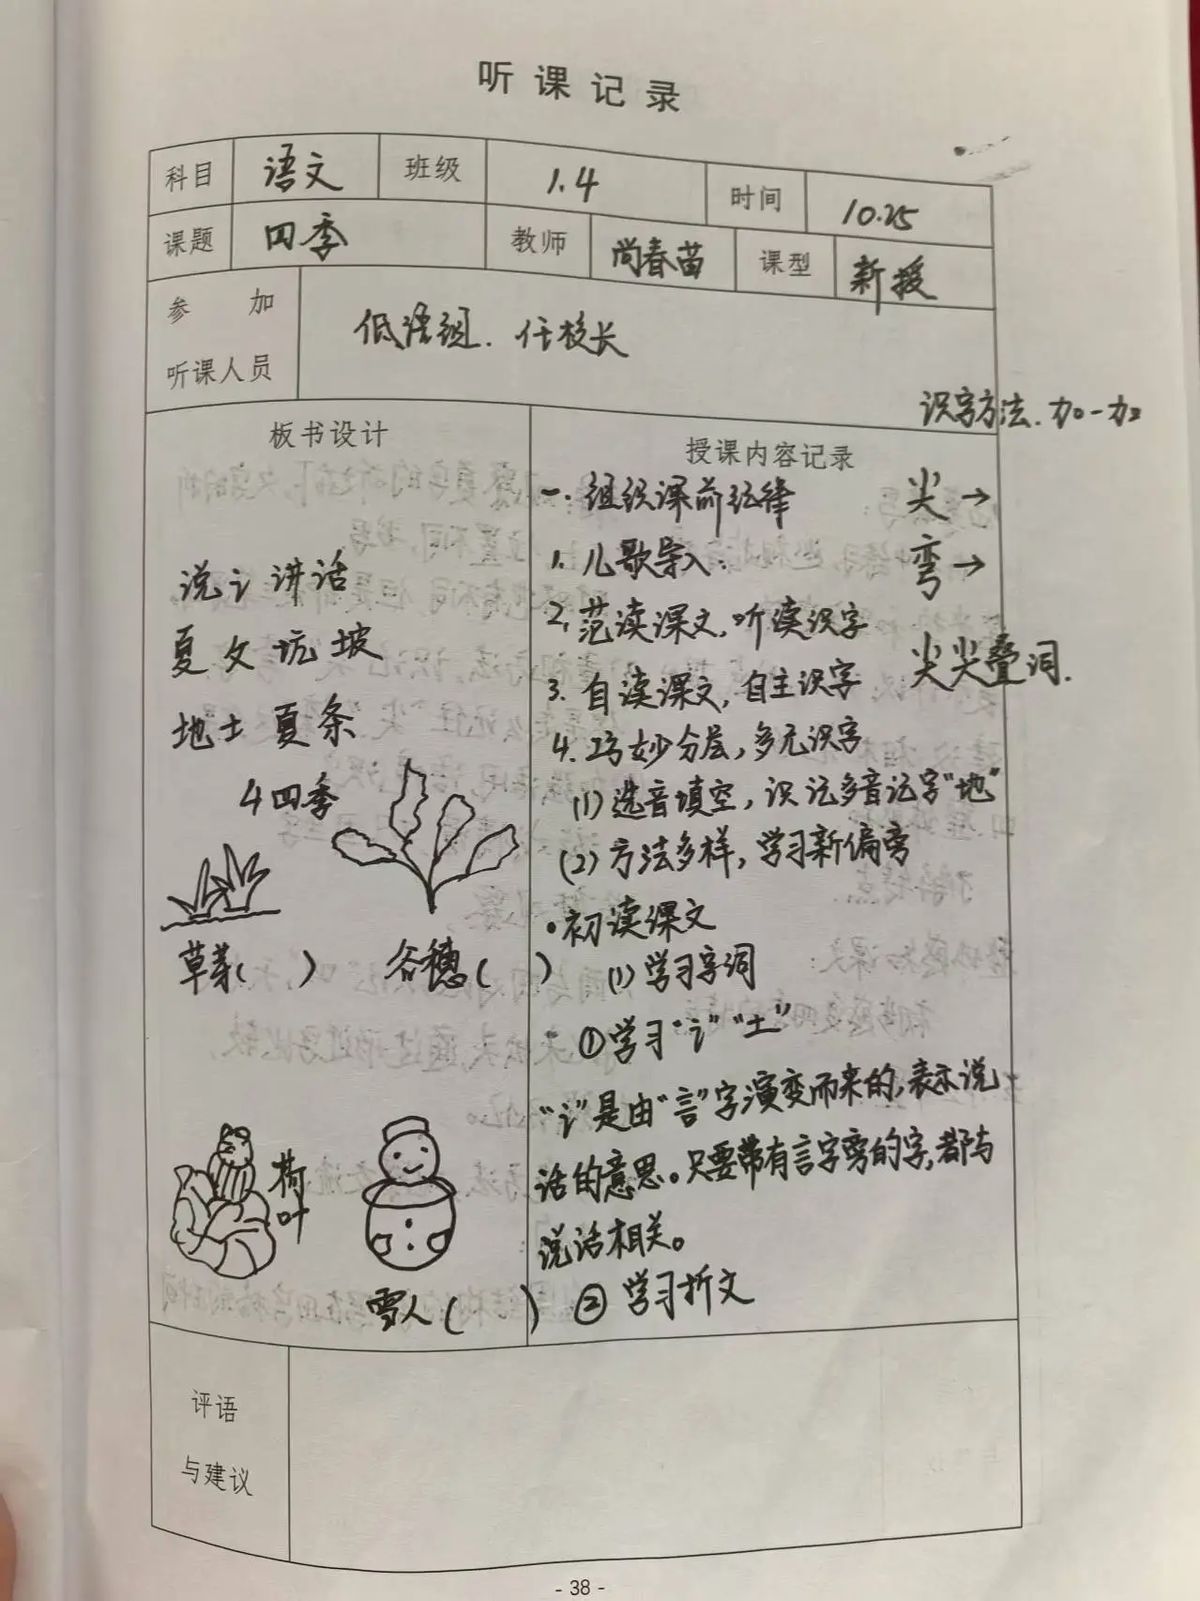 听课记录
科目 语文 班级 1.4 时间 10.25
课题 四季 教师 尚春苗 课型 新授
参加
听课人员
低语组. 任校长
识字方法. 加一加
板书设计
说讠讲话
夏夂坑坡
地土夏条
4四季
草芽( ) 谷穗( )
荷叶
雪人( )
授课内容记录
一. 组织课前纪律
尖→
1. 儿歌导入:
弯→
2. 范读课文, 听读识字
尖尖叠词.
3. 自读课文, 自主识字
4. 巧妙分层, 多元识字
(1) 选音填空, 识记多音记字"地"
(2) 方法多样, 学习新偏旁
·初读课文
(1) 学习字词
①学习"讠""土"
"讠"是由"言"字演变而来的, 表示说
话的意思。只要带有言字旁的字, 都与
说话相关。
② 学习折文
评语
与建议
- 38 -